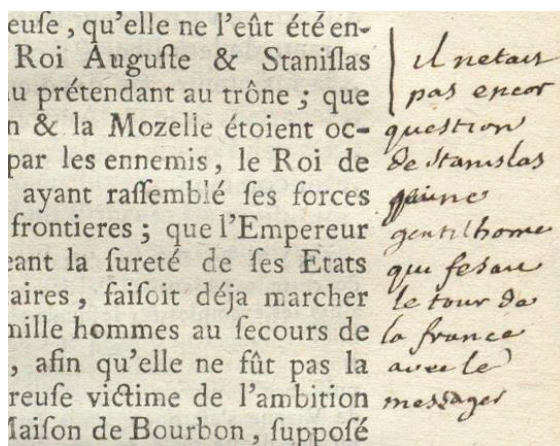 reuſe, qu'elle ne l'eût été en-
Roi Auguſte & Staniſlas
u prétendant au trône ; que
n & la Mozelle étoient oc-
par les ennemis, le Roi de
ayant raſſemblé ſes forces
frontieres ; que l'Empereur
eant la ſureté de ſes Etats
aires, faiſoit déja marcher
mille hommes au ſecours de
, afin qu'elle ne fût pas la
reuſe victime de l'ambition
Maiſon de Bourbon, ſuppoſé
il netait
pas encor
question
de stanislas
jeune
gentilhome
qui fesait
le tour de
la france
avec le
messager